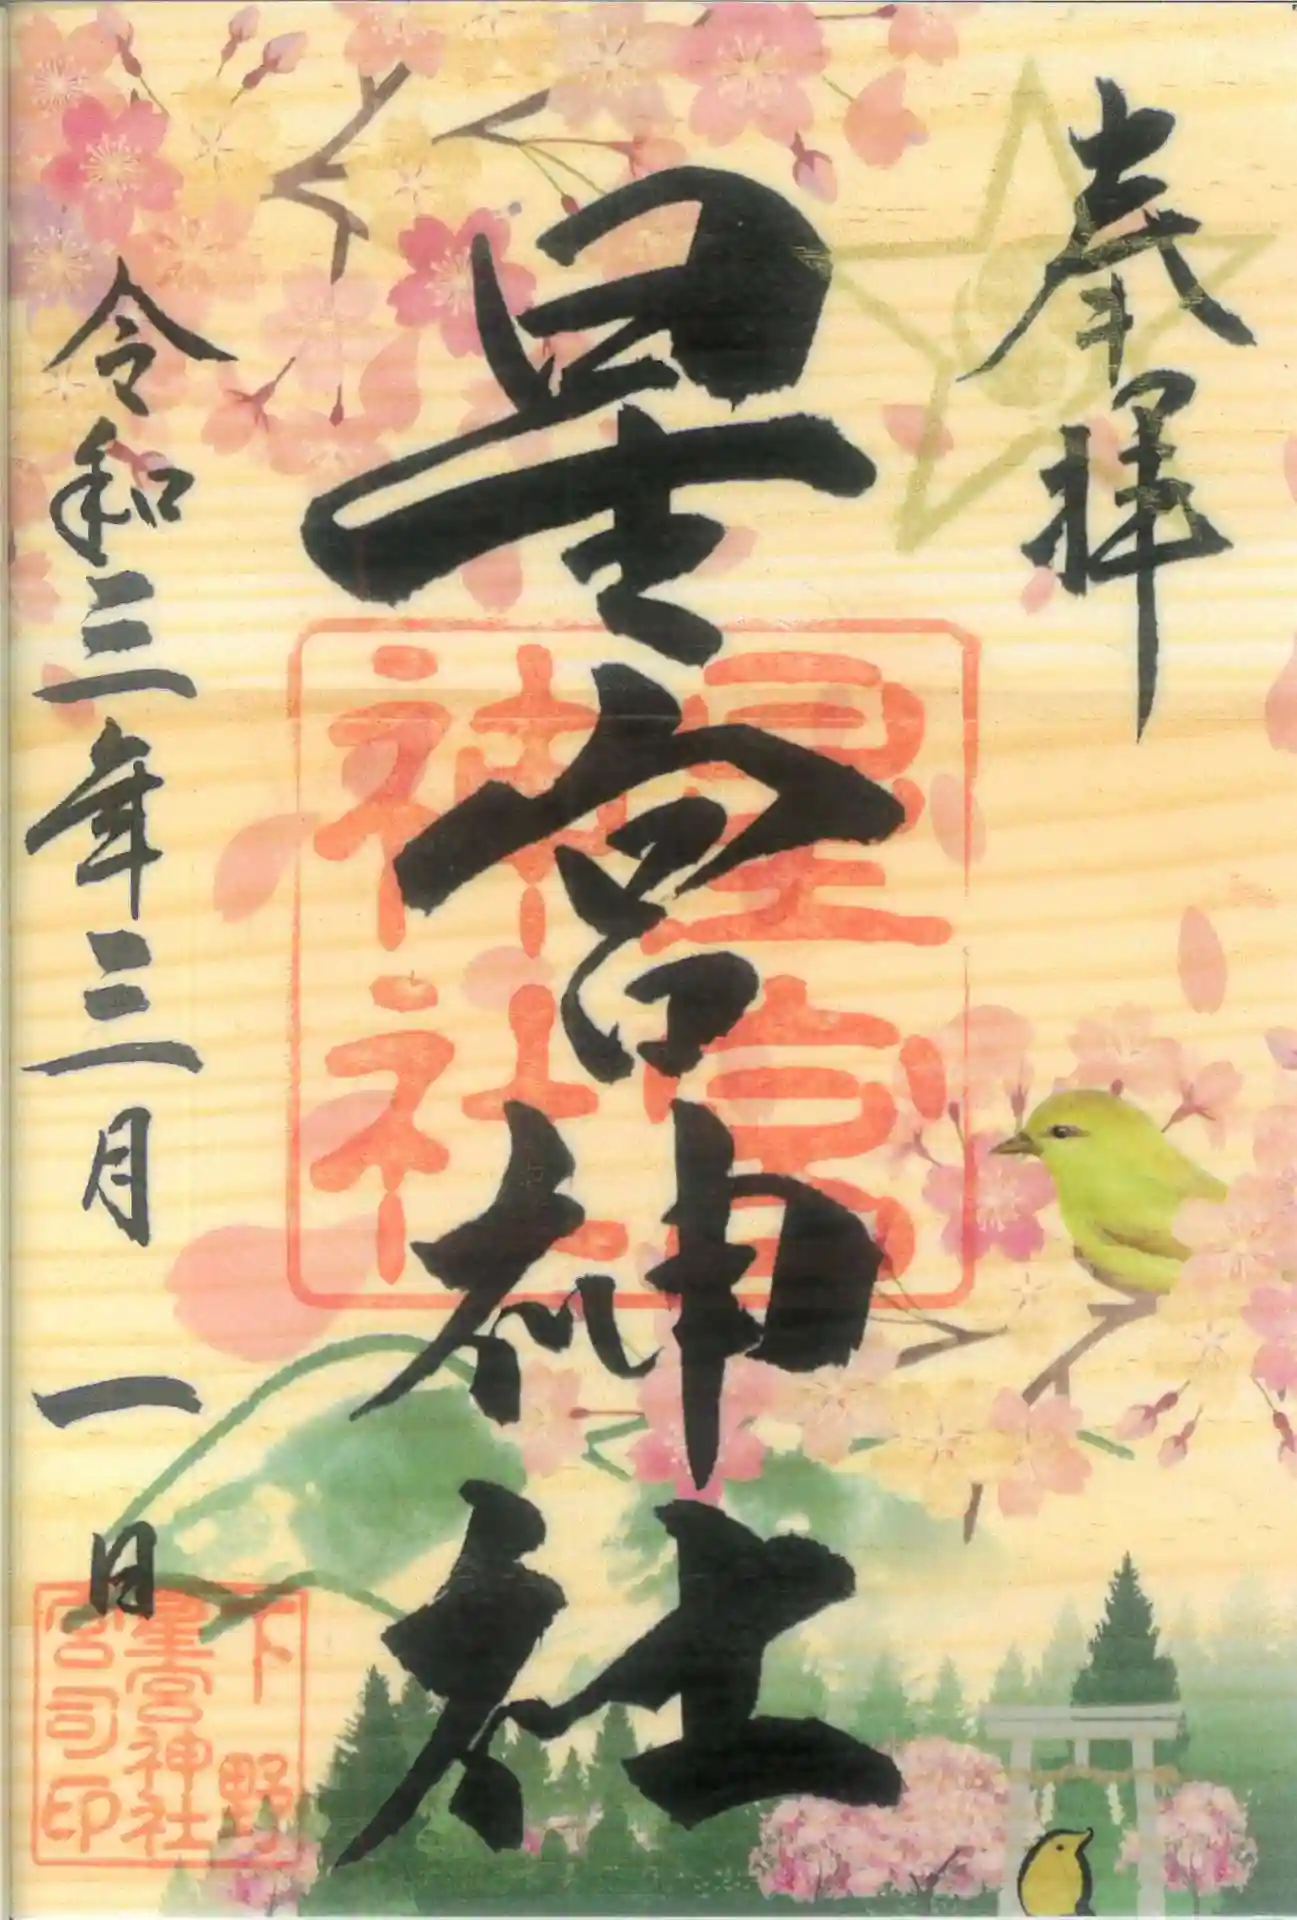 奉拝
星宮神社
星宮
神社
令和三年三月一日
下野
星宮神社
宮司印